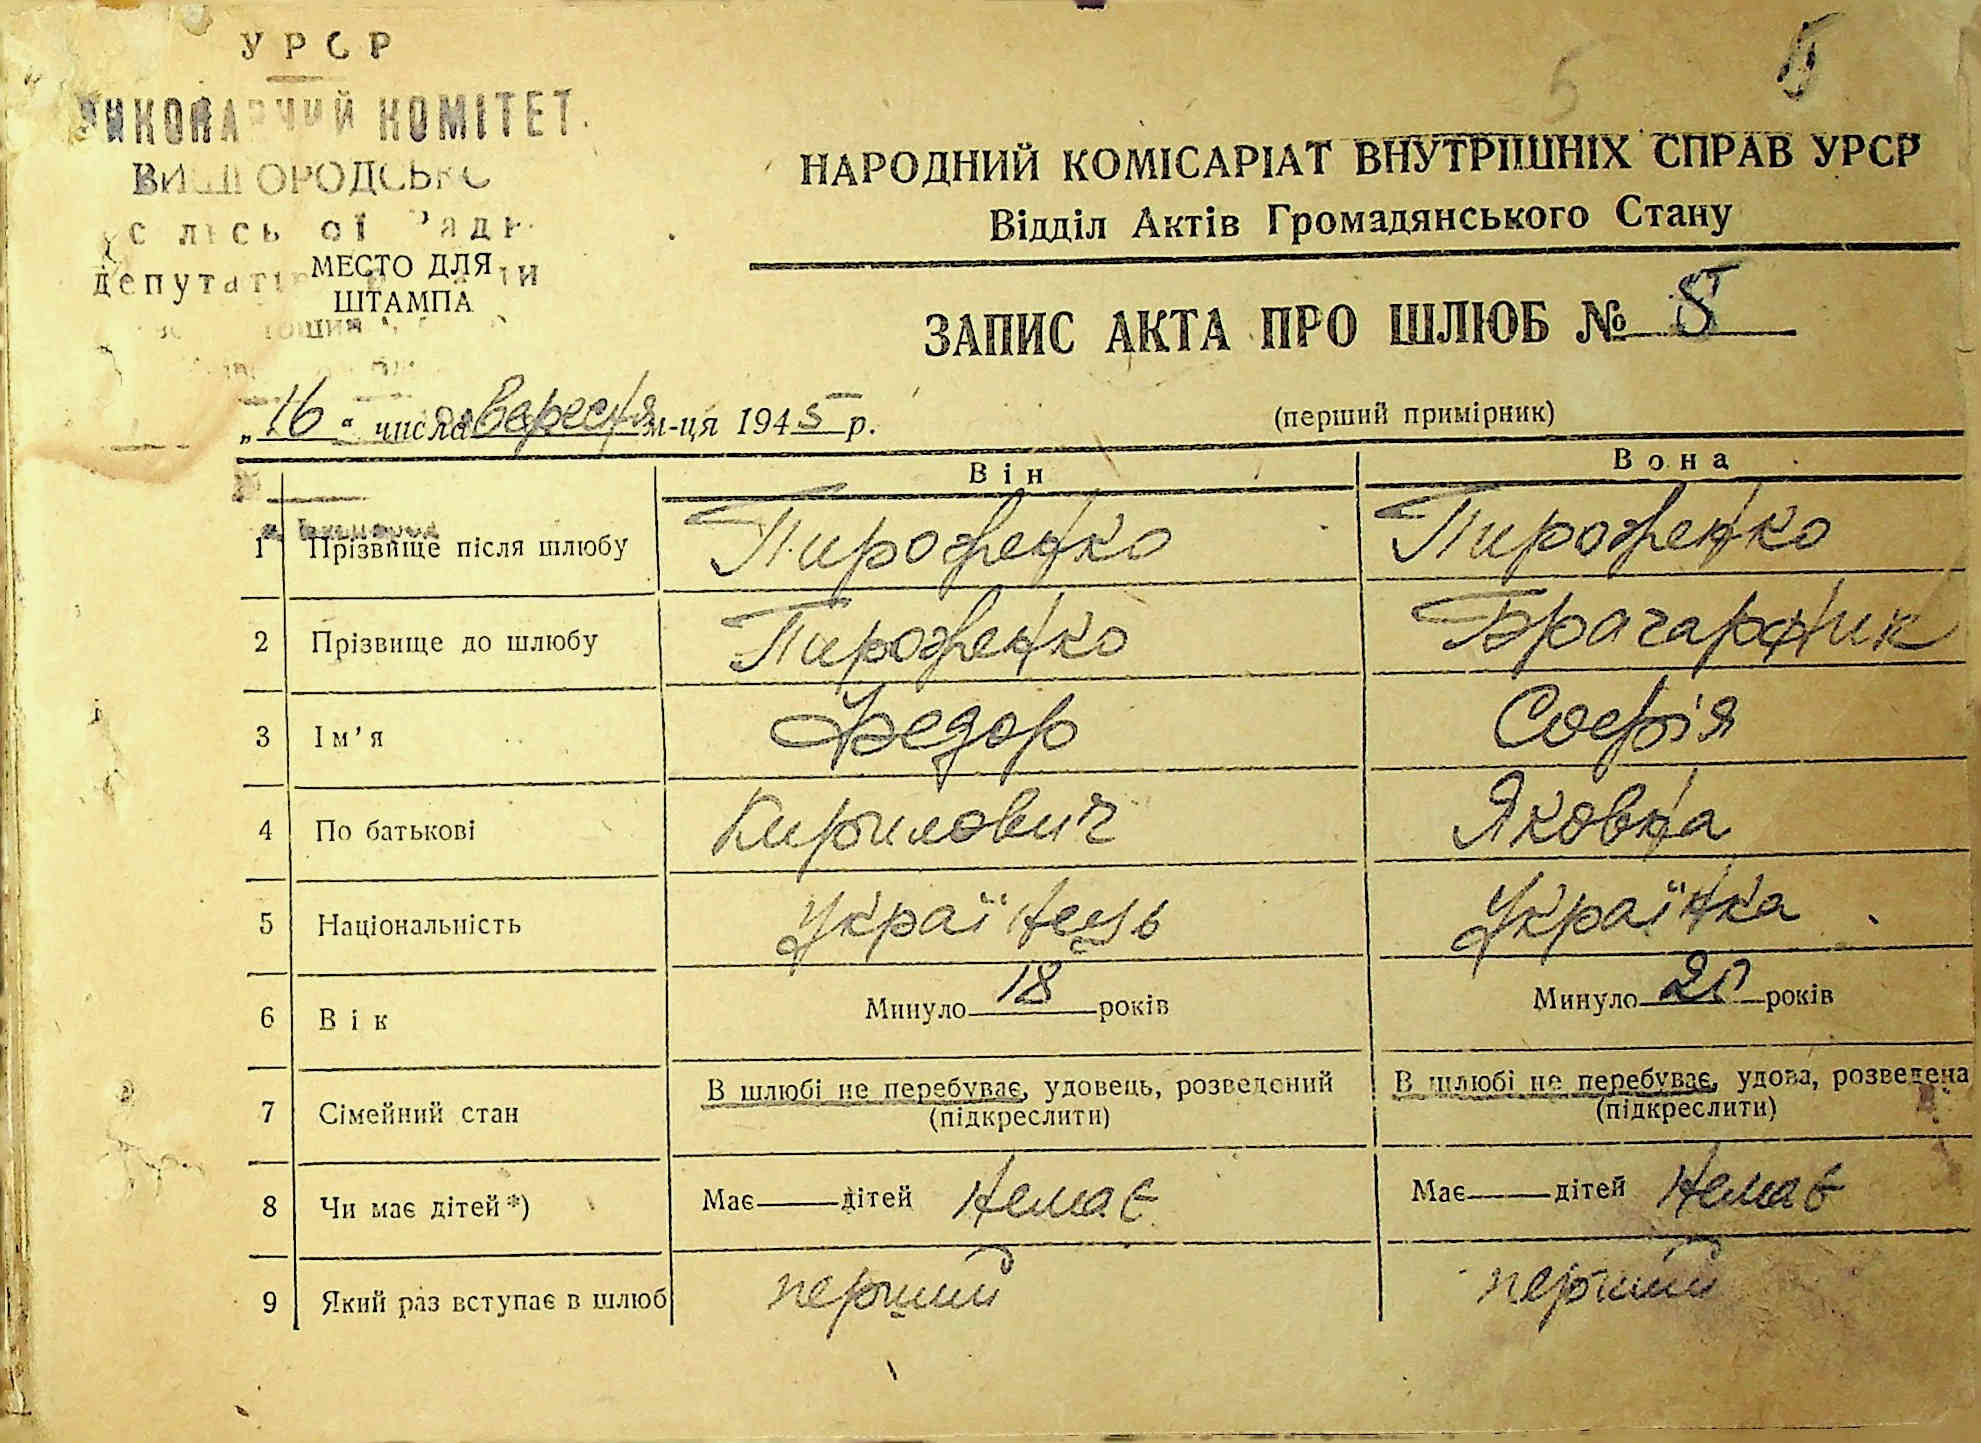 УРСР
ВИКОНАВЧИЙ КОМІТЕТ
МЕСТО ДЛЯ
ШТАМПА
5 5
НАРОДНИЙ КОМІСАРІАТ ВНУТРІШНІХ СПРАВ УРСР
Відділ Актів Громадянського Стану
ЗАПИС АКТА ПРО ШЛЮБ № 5
„16" числа вересня м-ця 1945 р.
(перший примірник)
Він Вона
1 Прізвище після шлюбу Пироженко Пироженко
2 Прізвище до шлюбу Пироженко Брагарник
3 Ім'я Федор Софія
4 По батькові Кирилович Яковна
5 Національність Українець Українка
6 Вік Минуло 18 років Минуло 20 років
7 Сімейний стан В шлюбі не перебуває, удовець, розведений В шлюбі не перебуває, удова, розведена
(підкреслити) (підкреслити)
8 Чи має дітей*) Має дітей Немає Має дітей Немає
9 Який раз вступає в шлюб перший перший